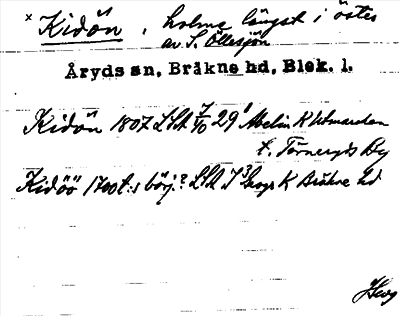 x Kidön, holme längst i öster
av S. Öllesjön
Åryds sn, Bräkne hd, Blek. l.
Kidön 1807 LSA 7/10 29¹ Abelin K Utmarken
t. Törneryds By
Kidöö 1700t:s börj? LSA J³ Geogr K Bräkne hd